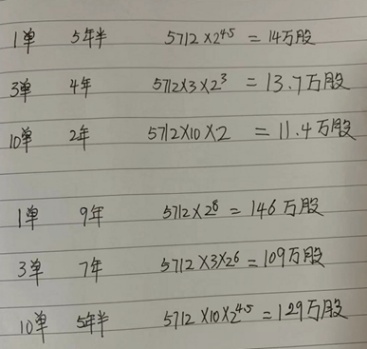 1单 5年半 5712×2^4.5 = 14万股
3单 4年 5712×3×2^3 = 13.7万股
10单 2年 5712×10×2 = 11.4万股
1单 9年 5712×2^8 = 146万股
3单 7年 5712×3×2^6 = 109万股
10单 5年半 5712×10×2^4.5 = 129万股